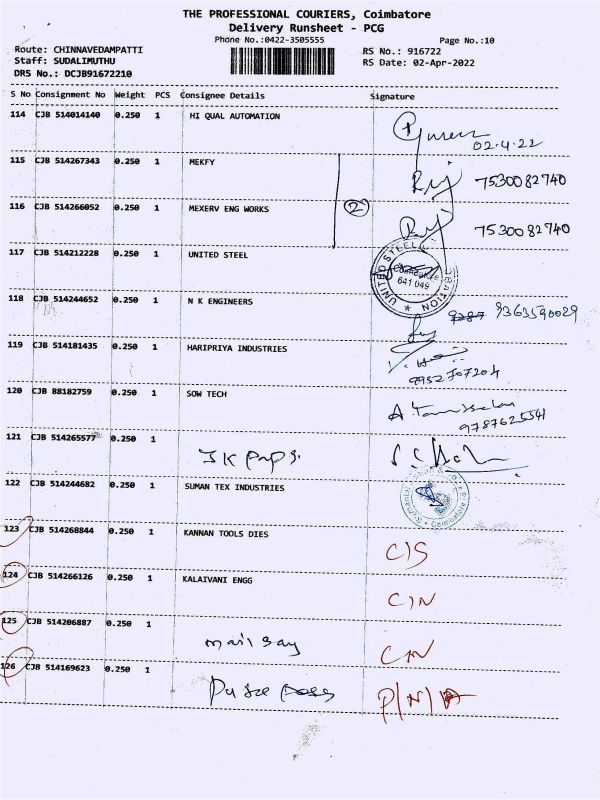 THE PROFESSIONAL COURIERS, Coimbatore
Delivery Runsheet - PCG
Phone No.:0422-3505555
Page No.:10
Route: CHINNAVEDAMPATTI
RS No.: 916722
Staff: SUDALIMUTHU
RS Date: 02-Apr-2022
DRS No.: DCJB91672210
S No Consignment No Weight PCS Consignee Details Signature
114 CJB 514014140 0.250 1 HI QUAL AUTOMATION
02.4.22
115 CJB 514267343 0.250 1 MEKFY 7530082740
116 CJB 514266052 0.250 1 MEXERV ENG WORKS 2 7530082740
117 CJB 514212228 0.250 1 UNITED STEEL
UNITED STEEL
641 049
118 CJB 514244652 0.250 1 N K ENGINEERS
9363590029
119 CJB 514181435 0.250 1 HARIPRIYA INDUSTRIES
9952707204
120 CJB 88182759 0.250 1 SOW TECH
9787625541
121 CJB 514265577 0.250 1
122 CJB 514244682 0.250 1 SUMAN TEX INDUSTRIES
Coimbatore
123 CJB 514268844 0.250 1 KANNAN TOOLS DIES
C/S
124 CJB 514266126 0.250 1 KALAIVANI ENGG
C/N
125 CJB 514206887 0.250 1
C/N
126 CJB 514169623 0.250 1
P/N/A